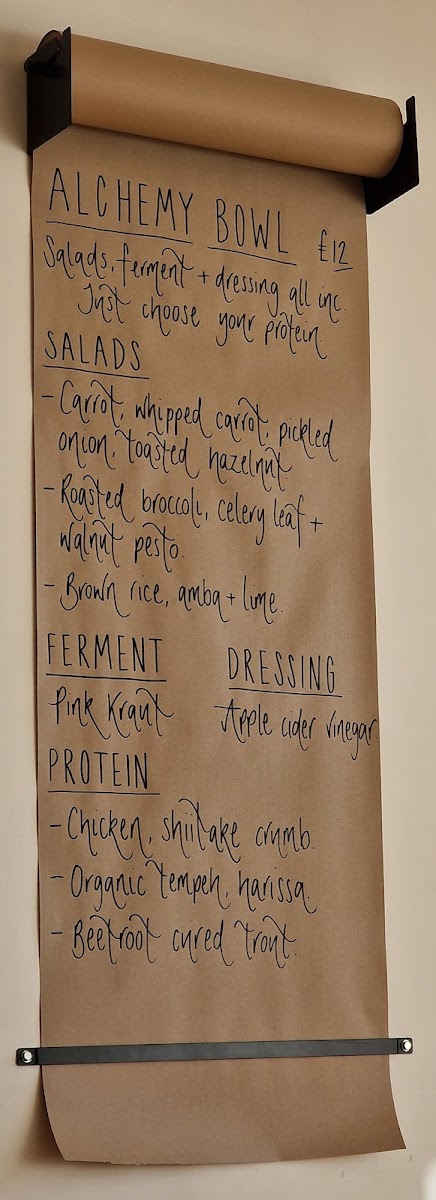 ALCHEMY BOWL £12
Salads, ferment + dressing all inc.
Just choose your protein
SALADS
- Carrot, whipped carrot, pickled
onion, toasted hazelnut.
- Roasted broccoli, celery leaf +
walnut pesto.
- Brown rice, amba + lime.
FERMENT DRESSING
Pink Kraut Apple cider vinegar
PROTEIN
- Chicken, shiitake crumb.
- Organic tempeh, harissa.
- Beetroot cured trout.